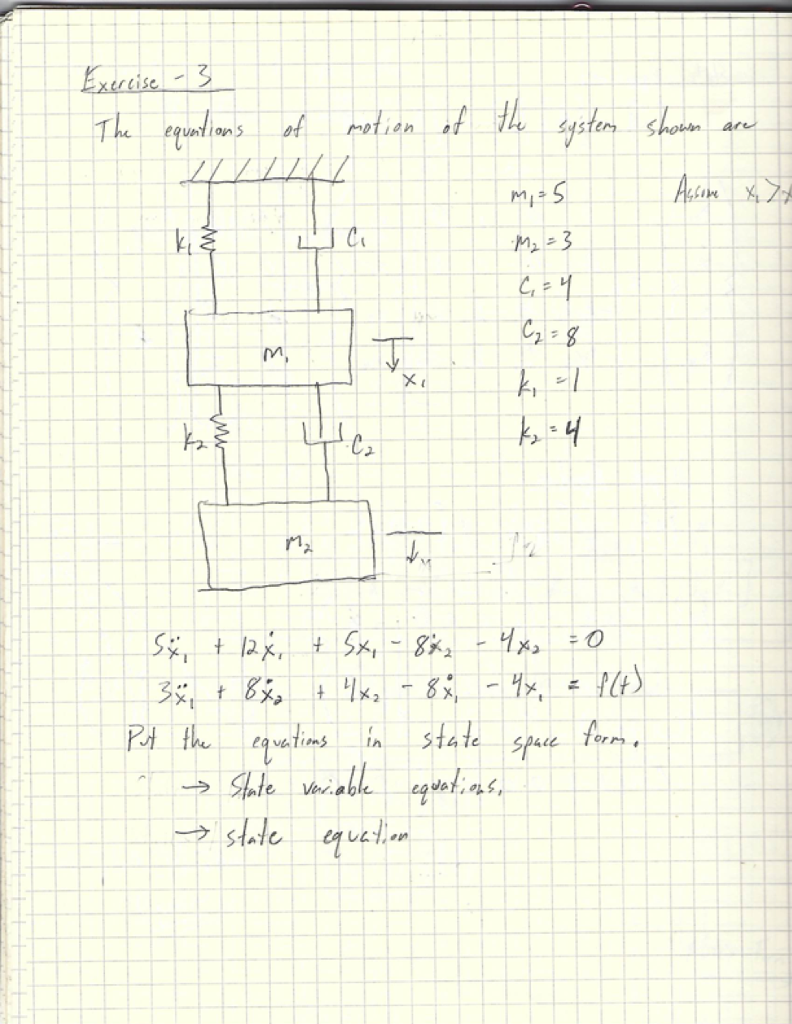 Exercise - 3
The equations of motion of the system shown are
m₁ = 5 Assume x₁ >
k₁ C₁ m₂ = 3
C₁ = 4
m₁ C₂ = 8
x₁ k₁ = 1
k₂ C₂ k₂ = 4
m₂
5ẍ₁ + 12ẋ₁ + 5x₁ - 8ẋ₂ - 4x₂ = 0
3ẍ₁ + 8ẋ₂ + 4x₂ - 8ẋ₁ - 4x₁ = f(t)
Put the equations in state space form.
→ State variable equations.
→ state equation